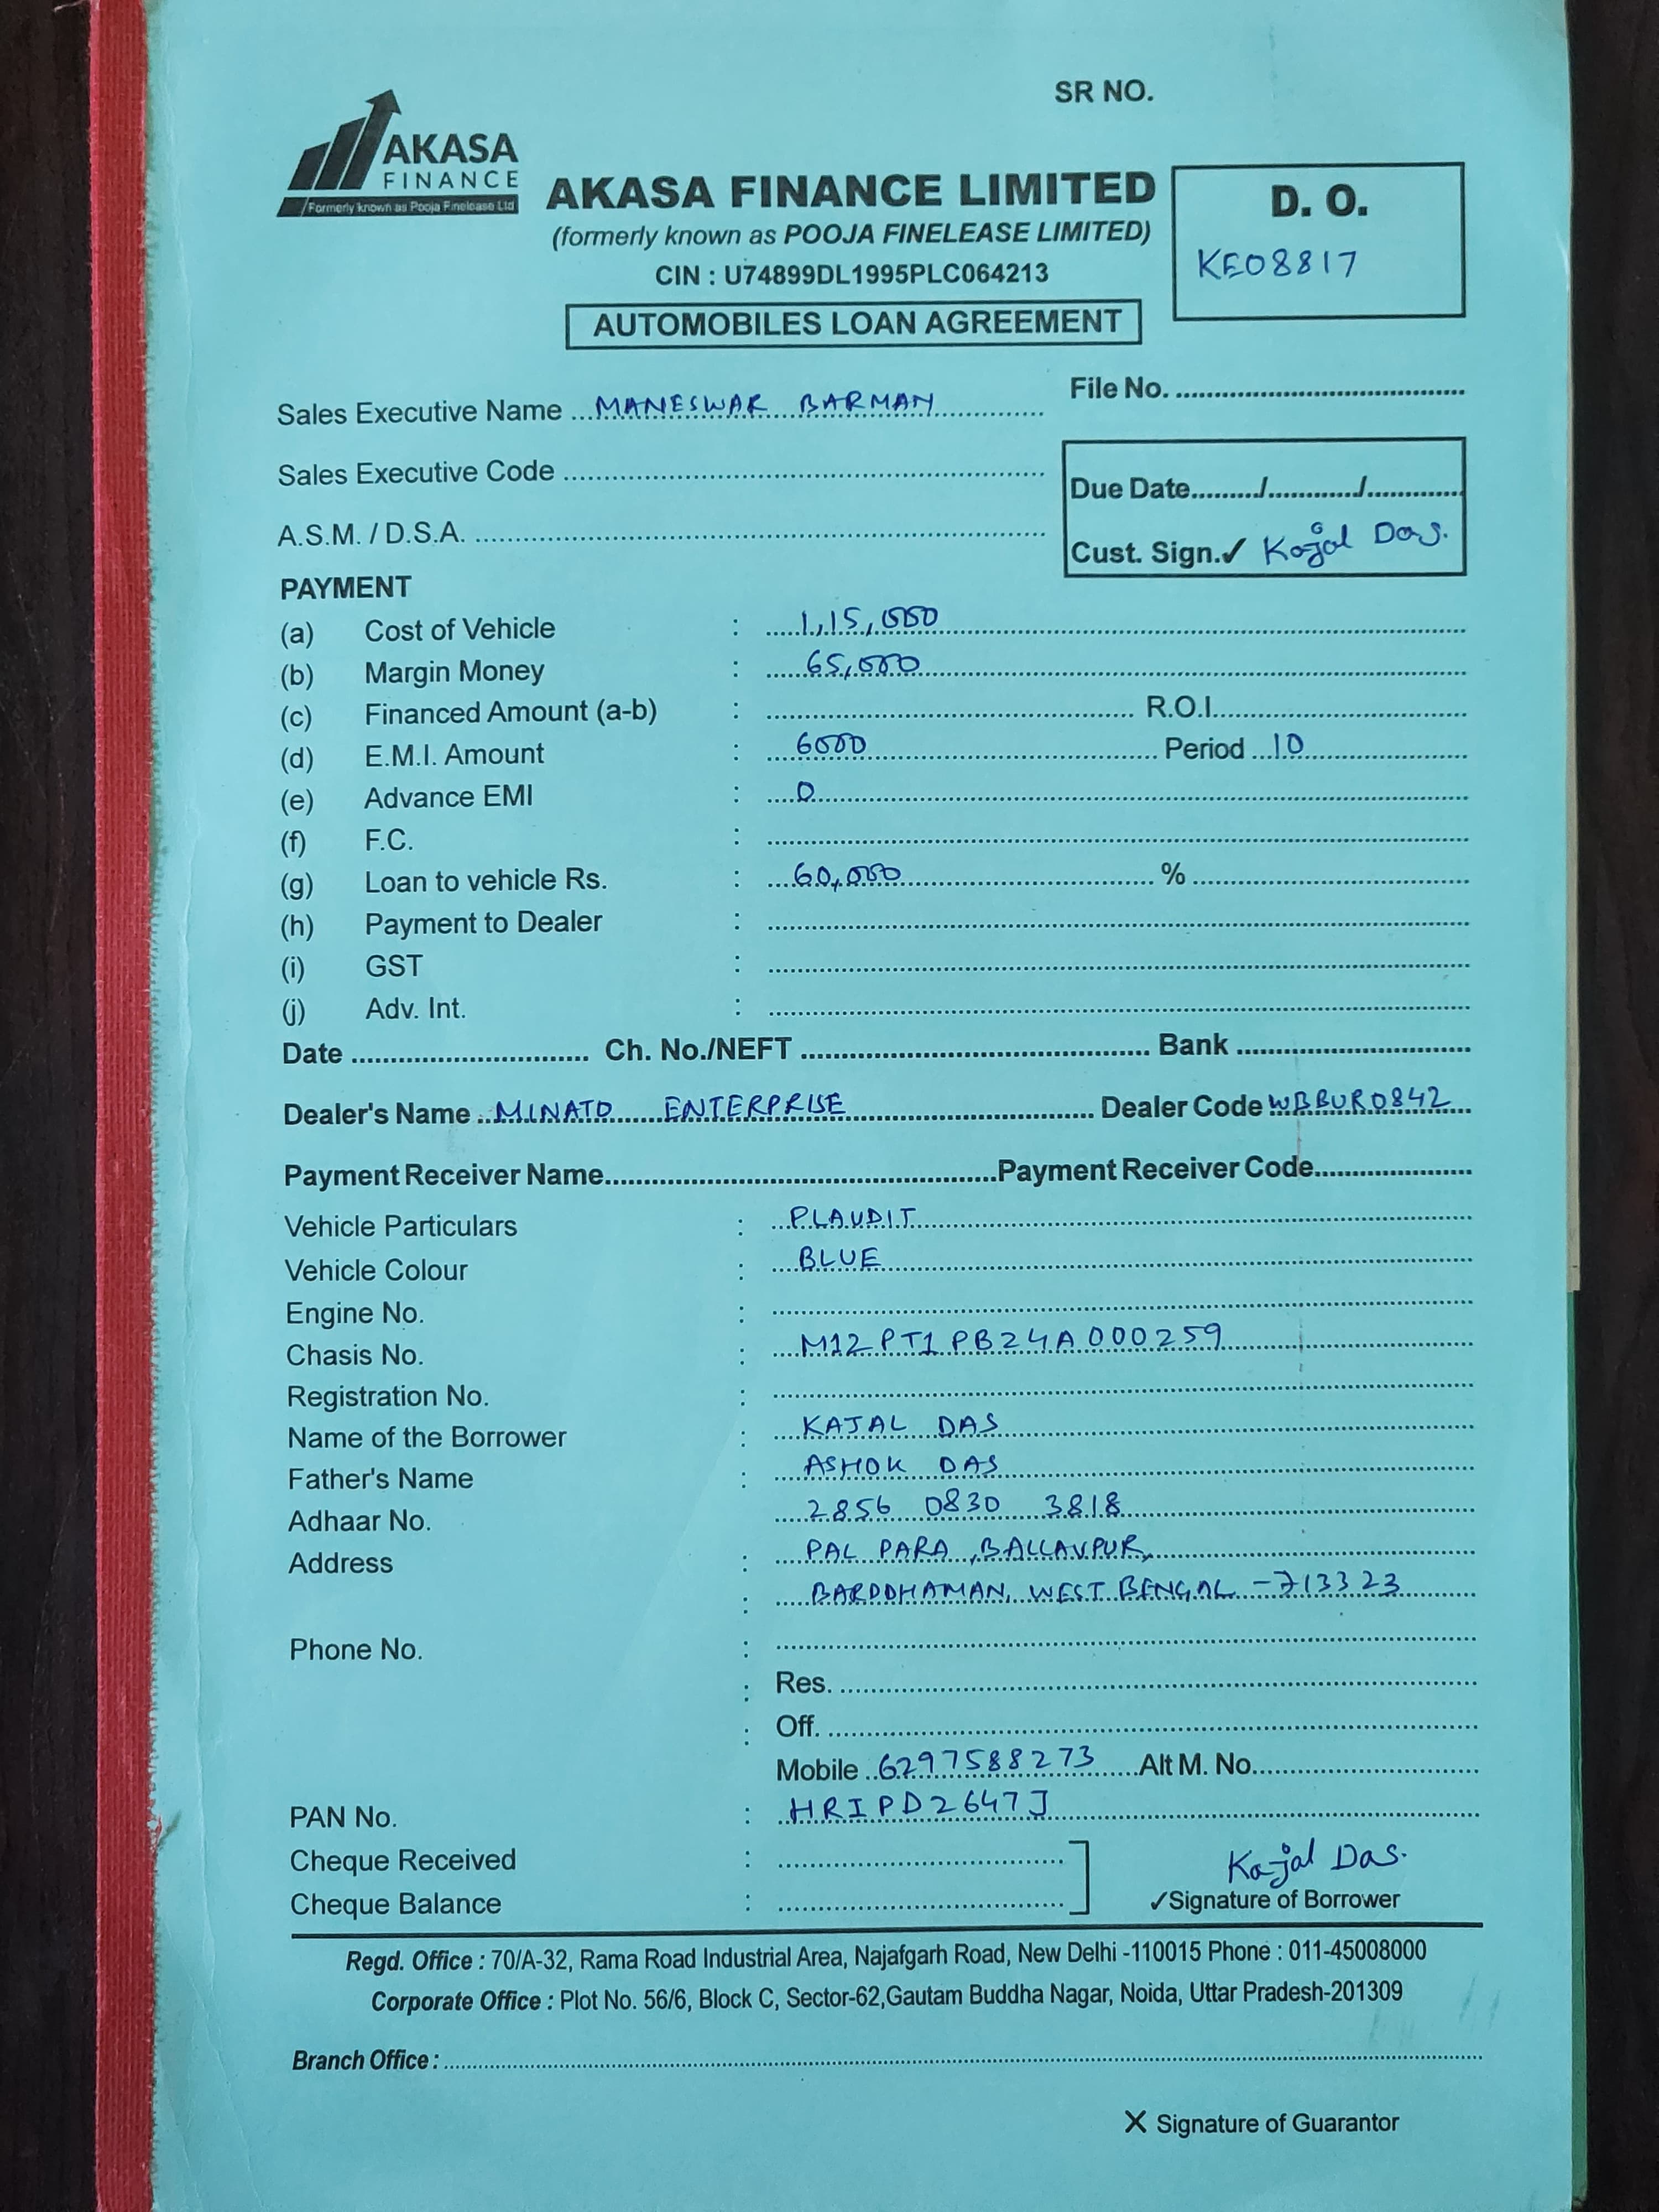 SR NO.
AKASA
FINANCE
Formerly known as Pooja Finelease Ltd
AKASA FINANCE LIMITED
(formerly known as POOJA FINELEASE LIMITED)
CIN : U74899DL1995PLC064213
AUTOMOBILES LOAN AGREEMENT
D. O.
KE08817
Sales Executive Name MANESWAR BARMAN
File No.
Sales Executive Code
Due Date / /
A.S.M. / D.S.A.
Cust. Sign.✓ Kajal Das.
PAYMENT
(a) Cost of Vehicle : 1,15,000
(b) Margin Money : 65,000
(c) Financed Amount (a-b) : R.O.I.
(d) E.M.I. Amount : 6000 Period 10
(e) Advance EMI : 0
(f) F.C. :
(g) Loan to vehicle Rs. : 60,000 %
(h) Payment to Dealer :
(i) GST :
(j) Adv. Int. :
Date Ch. No./NEFT Bank
Dealer's Name MINATO ENTERPRISE Dealer Code WBBUR0842
Payment Receiver Name Payment Receiver Code
Vehicle Particulars : PLAUDIT
Vehicle Colour : BLUE
Engine No. :
Chasis No. : M12PT1PB24A000259
Registration No. :
Name of the Borrower : KAJAL DAS
Father's Name : ASHOK DAS
Adhaar No. 2856 0830 3818
Address : PAL PARA, BALLAVPUR,
: BARDDHAMAN, WEST BENGAL - 713323
Phone No. :
: Res.
: Off.
Mobile 6297588273 Alt M. No.
PAN No. : HRIPD2647J
Cheque Received :
Cheque Balance :
Kajal Das.
✓Signature of Borrower
Regd. Office : 70/A-32, Rama Road Industrial Area, Najafgarh Road, New Delhi -110015 Phone : 011-45008000
Corporate Office : Plot No. 56/6, Block C, Sector-62,Gautam Buddha Nagar, Noida, Uttar Pradesh-201309
Branch Office :
X Signature of Guarantor